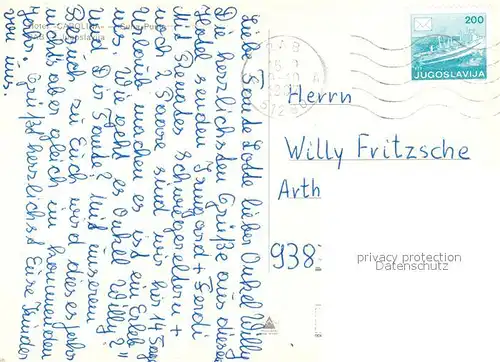 Hotel CAROLINA
RAB Jugoslavija
Liebe Tante Lotte lieber Onkel Willy
Die herzlichsten Grüße aus diesem
Hotel senden Irmgard + Ferdi
Mit Renates Schwiegereltern +
noch 2 Paare sind wir hir 14 Tage
Urlaub machen es ist ein Erleb
nis. Wie geht es Onkel Willy?
Und Dir Tante? Mit unserem
Besuch zu Euch wird dieses Jahr
nichts aber gleich im kommenden
Jahr. Grüßt herzlichst Eure Kinder
von uns.
RAB
51280
200
JUGOSLAVIJA
Herrn
Willy Fritzsche
Arth
938
privacy protection
Datenschutz